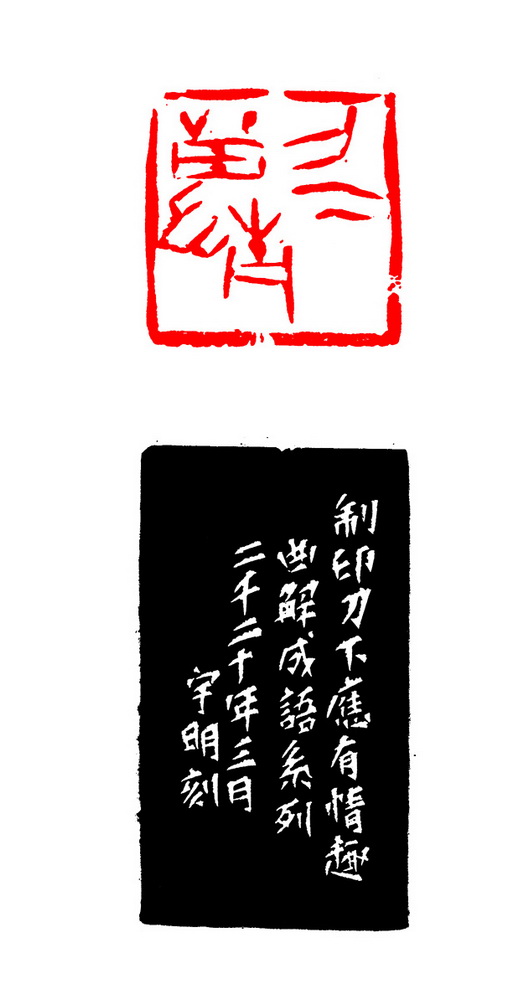 刀下
留情
制印刀下應有情趣
曲解成語系列
二千二十年三月
宇明刻